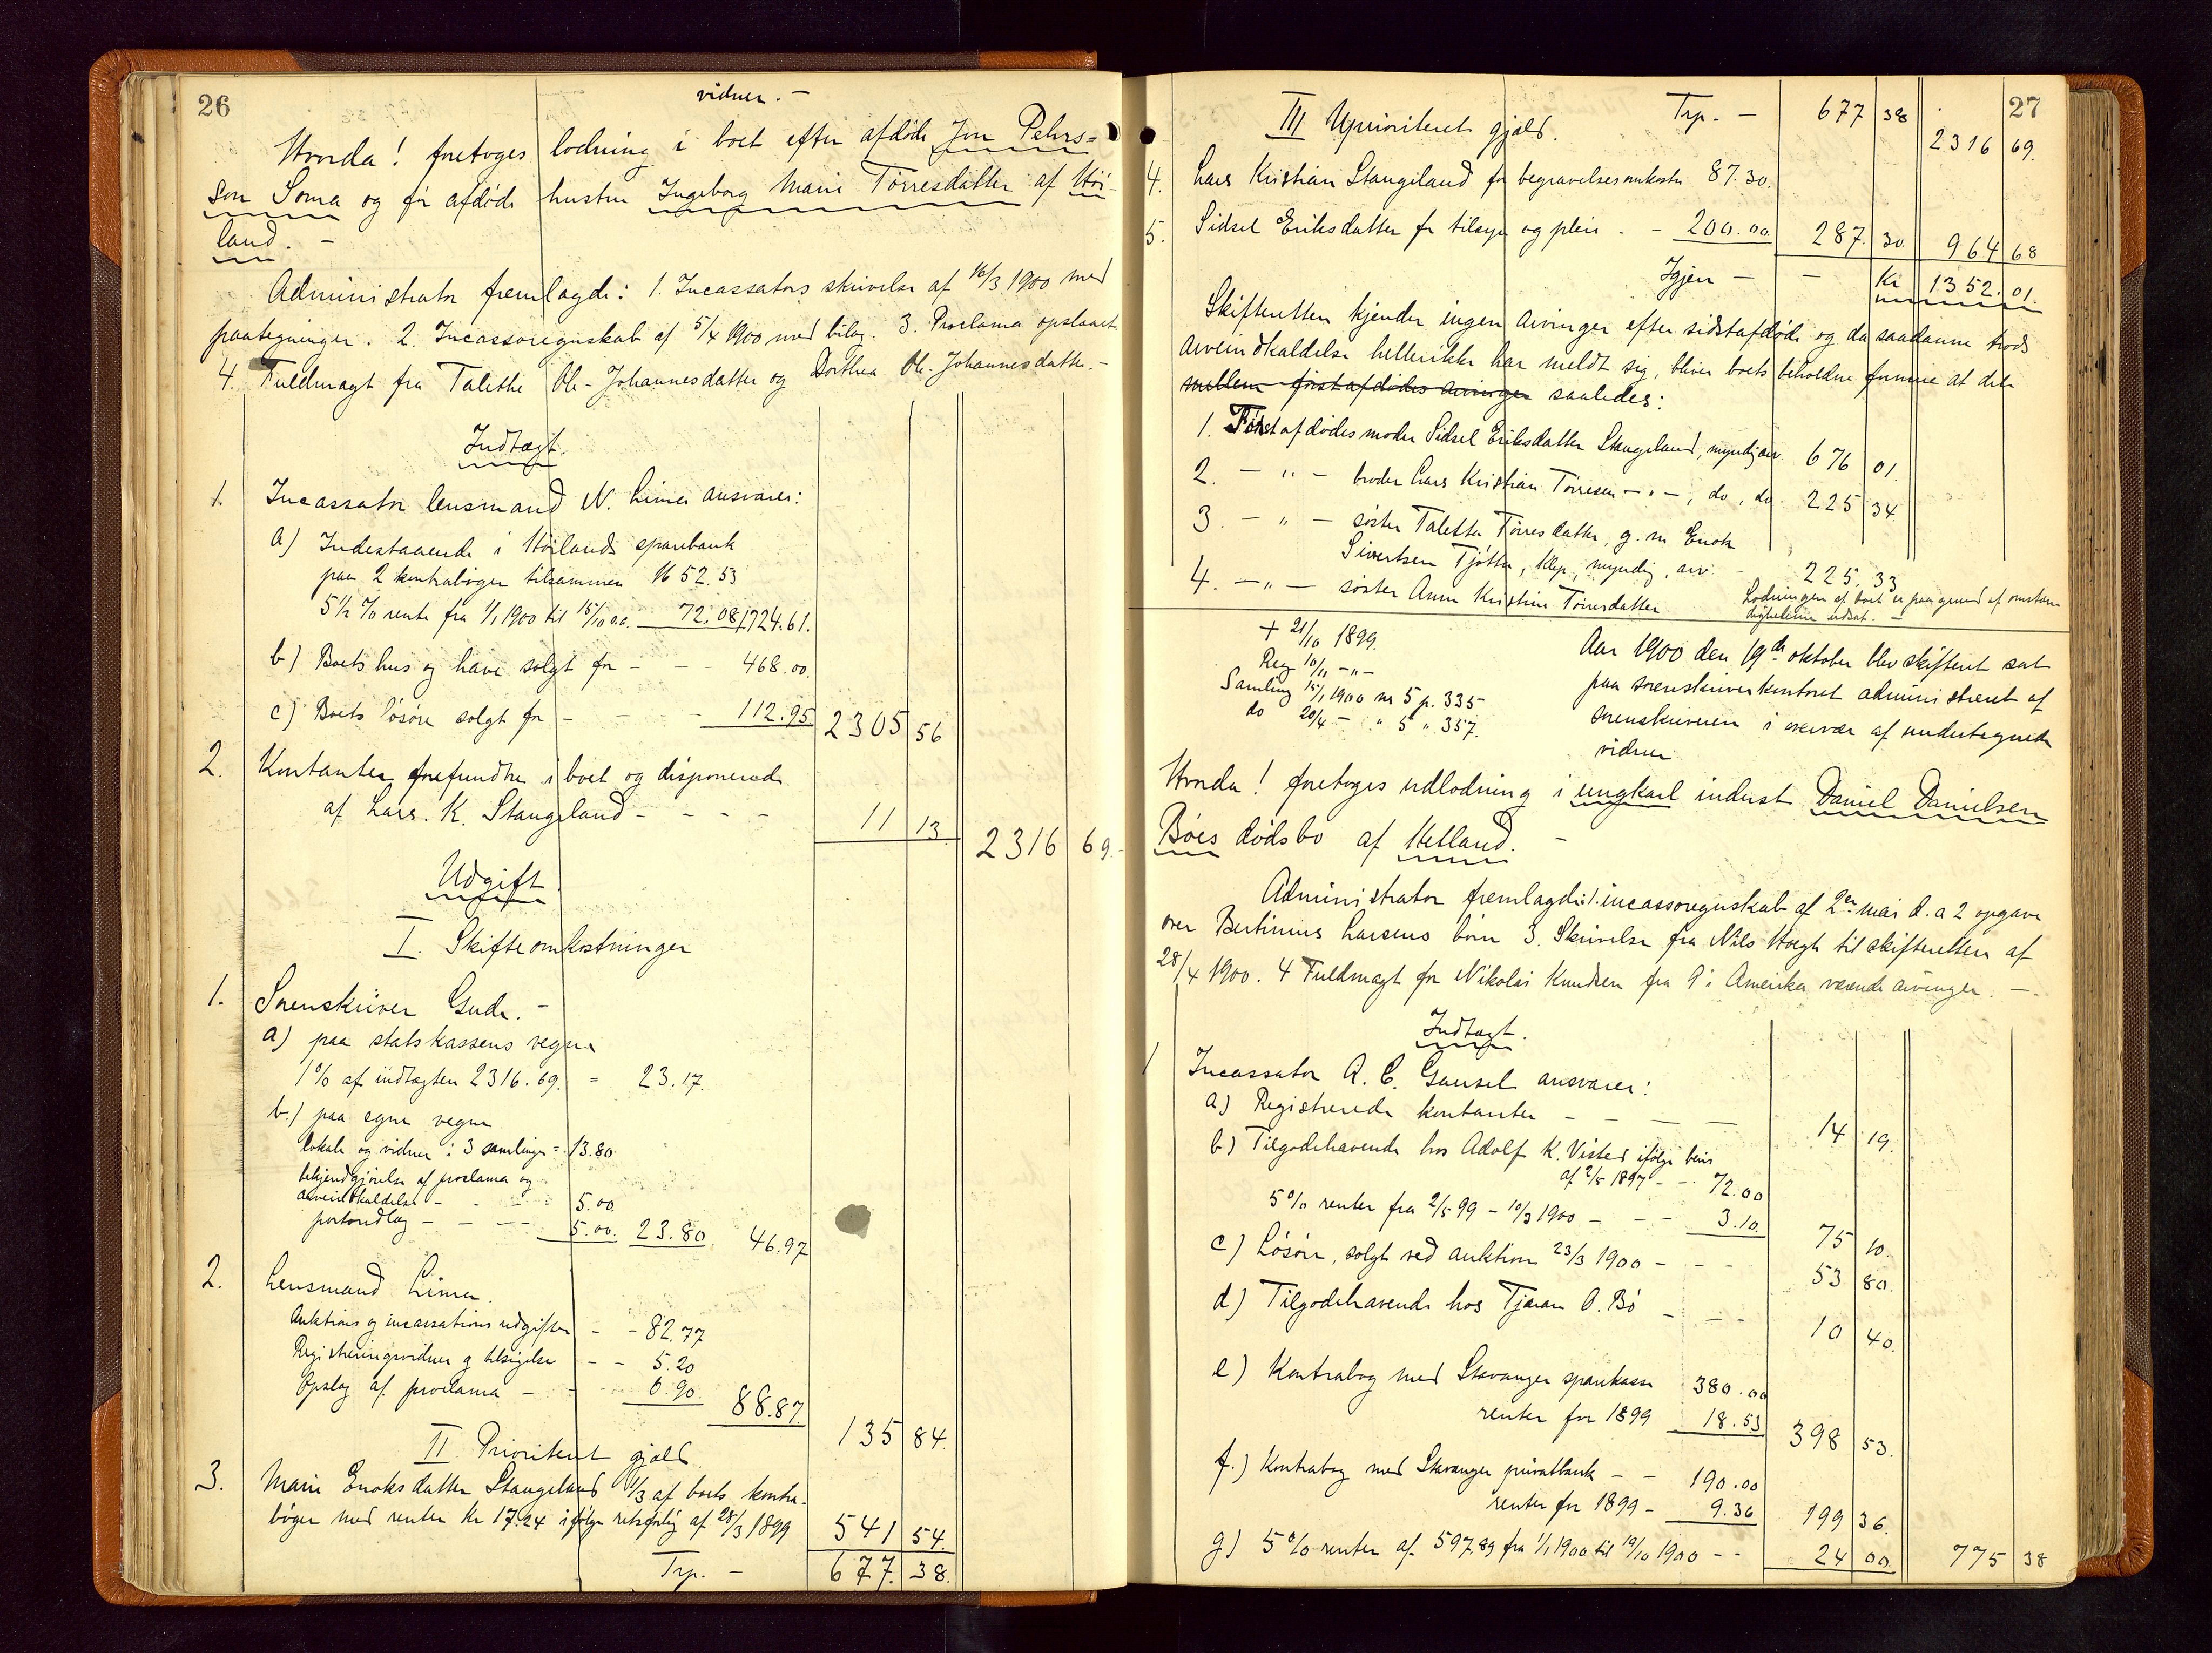 26
vidner. -
Hvorda! foretoges lodning i boet efter afdøde Jon Pehrs=
son Soma og før afdøde hustru Ingeborg Marie Tørresdatter af Høi-
land. -
Administrator fremlagde: 1. Incassators skrivelse af 16/3 1900 med
paategninger. 2. Incassoregnskab af 5/4 1900 med bilag. 3. Proclama opslaaet
4. Fuldmagt fra Talethe Ole-Johannesdatter og Dorthea Ole-Johannesdatter. -
Indtægt.
1. Incassator lensmand N. Lima ansvarer:
a) Indestaaende i Høilands sparebank
paa 2 kontrabøger tilsammen 1652.53
5 1/2 % rente fra 1/1 1900 til 15/10 a.c. 72.08 1724.61.
b) Boets hus og have solgt for - - - 468.00.
c) Boets løsøre solgt for - - - 112.95 2305 56
2. Kontanter forefundne i boet og disponerede
af Lars. K. Stangeland - - - - 11 13 2316 69.-
Udgift.
I. Skifteomkostninger
1. Sorenskriver Gude. -
a) paa statskassens vegne
1% af indtægten 2316.69. = 23.17.
b.) paa egne vegne
lokale og vidner i 3 samlinger = 13.80
bekjendgjørelse af proclama og
arveindkaldelse - - - 5.00
portoudlæg - - - 5.00. 23.80. 46.97
2. Lensmand Lima.
Auktions og incassations udgifter - - 82.77
Registreringsvidner og tilsigelse - - 5.20
Opslag af proclama - - 0.90. 88.87. 135 84.
II Prioriteret gjæld.
3. Marie Enoksdatter Stangeland 1/3 af boets kontra-
bøger med renter Kr 17.24 ifølge retsforlig af 28/3 1899 541 54.
Trp. - 677. 38.
27
Trp. - 677 38
III Uprioriteret gjæld. 2316 69.
4. Lars Kristian Stangeland for begravelsesomkostn 87.30.
5. Sidsel Eriksdatter for tilsyn og pleie - - 200.00 287. 30 964 68
Igjen - - Kr 1352. 01.
Skifteretten kjender ingen arvinger efter sidstafdøde og da saadanne trods
arveindkaldelse hellerikke har meldt sig, bliver boets beholdne formue at dele
mellem førstafdødes arvinger saaledes:
1. Førstafdødes moder Sidsel Eriksdatter Stangeland, myndig arv. 676 01.
2. - " - broder Lars Kristian Tørresen - " -, do, do. 225 34.
3. - " - søster Taletta Tørresdatter, g. m Enok
Sivertsen Tjøtta, Klep, myndig, arv. - 225,33
4. - " - søster Anne Kristine Tørresdatter
Lodningen af boet er paa grund af omstæn
dighederne udsat. -
+ 21/10 1899.
Reg 10/11 - " -
Samling 15/1 1900 nr 5 p. 335
do 20/4 - " 5 " 357.
Aar 1900 den 19de oktober blev skifteret sat
paa sorenskriverkontoret administreret af
sorenskriveren i overvær af undertegnede
vidner
Hvorda! foretoges udlodning i ungkarl inderst Daniel Danielsen
Bøes dødsbo af Hetland. -
Administrator fremlagde: 1. incassoregnskab af 2en mai d. a 2 opgave
over Bertinius Larsens børn 3. Skrivelse fra Nils Høegh til skifteretten af
28/4 1900. 4 Fuldmagt for Nikolai Knudsen fra 9 i Amerika værende arvinger. -
Indtægt.
1 Incassator A. C. Gausel ansvarer:
a) Registrerede kontanter - - - 14 19.
b) Tilgodehavende hos Adolf K. Visted ifølge bevis
af 2/5 1897 - - 72.00
5% renter fra 2/5 99 - 10/3 1900 - - - 3.10. 75 10.
c) Løsøre, solgt ved auktion 23/3 1900 - - - 53 80.
d) Tilgodehavende hos Tjøran O. Bø - - - 10 40.
e) Kontrabog med Stavanger sparekasse 380.00
renter for 1899 18.53 398 53.
f.) Kontrabog med Stavanger privatbank - - 190.00
renter for 1899 - 9.36 199 36.
g) 5% renter af 597.89 fra 1/1 1900 til 19/10 1900 - - 24 00. 775 38